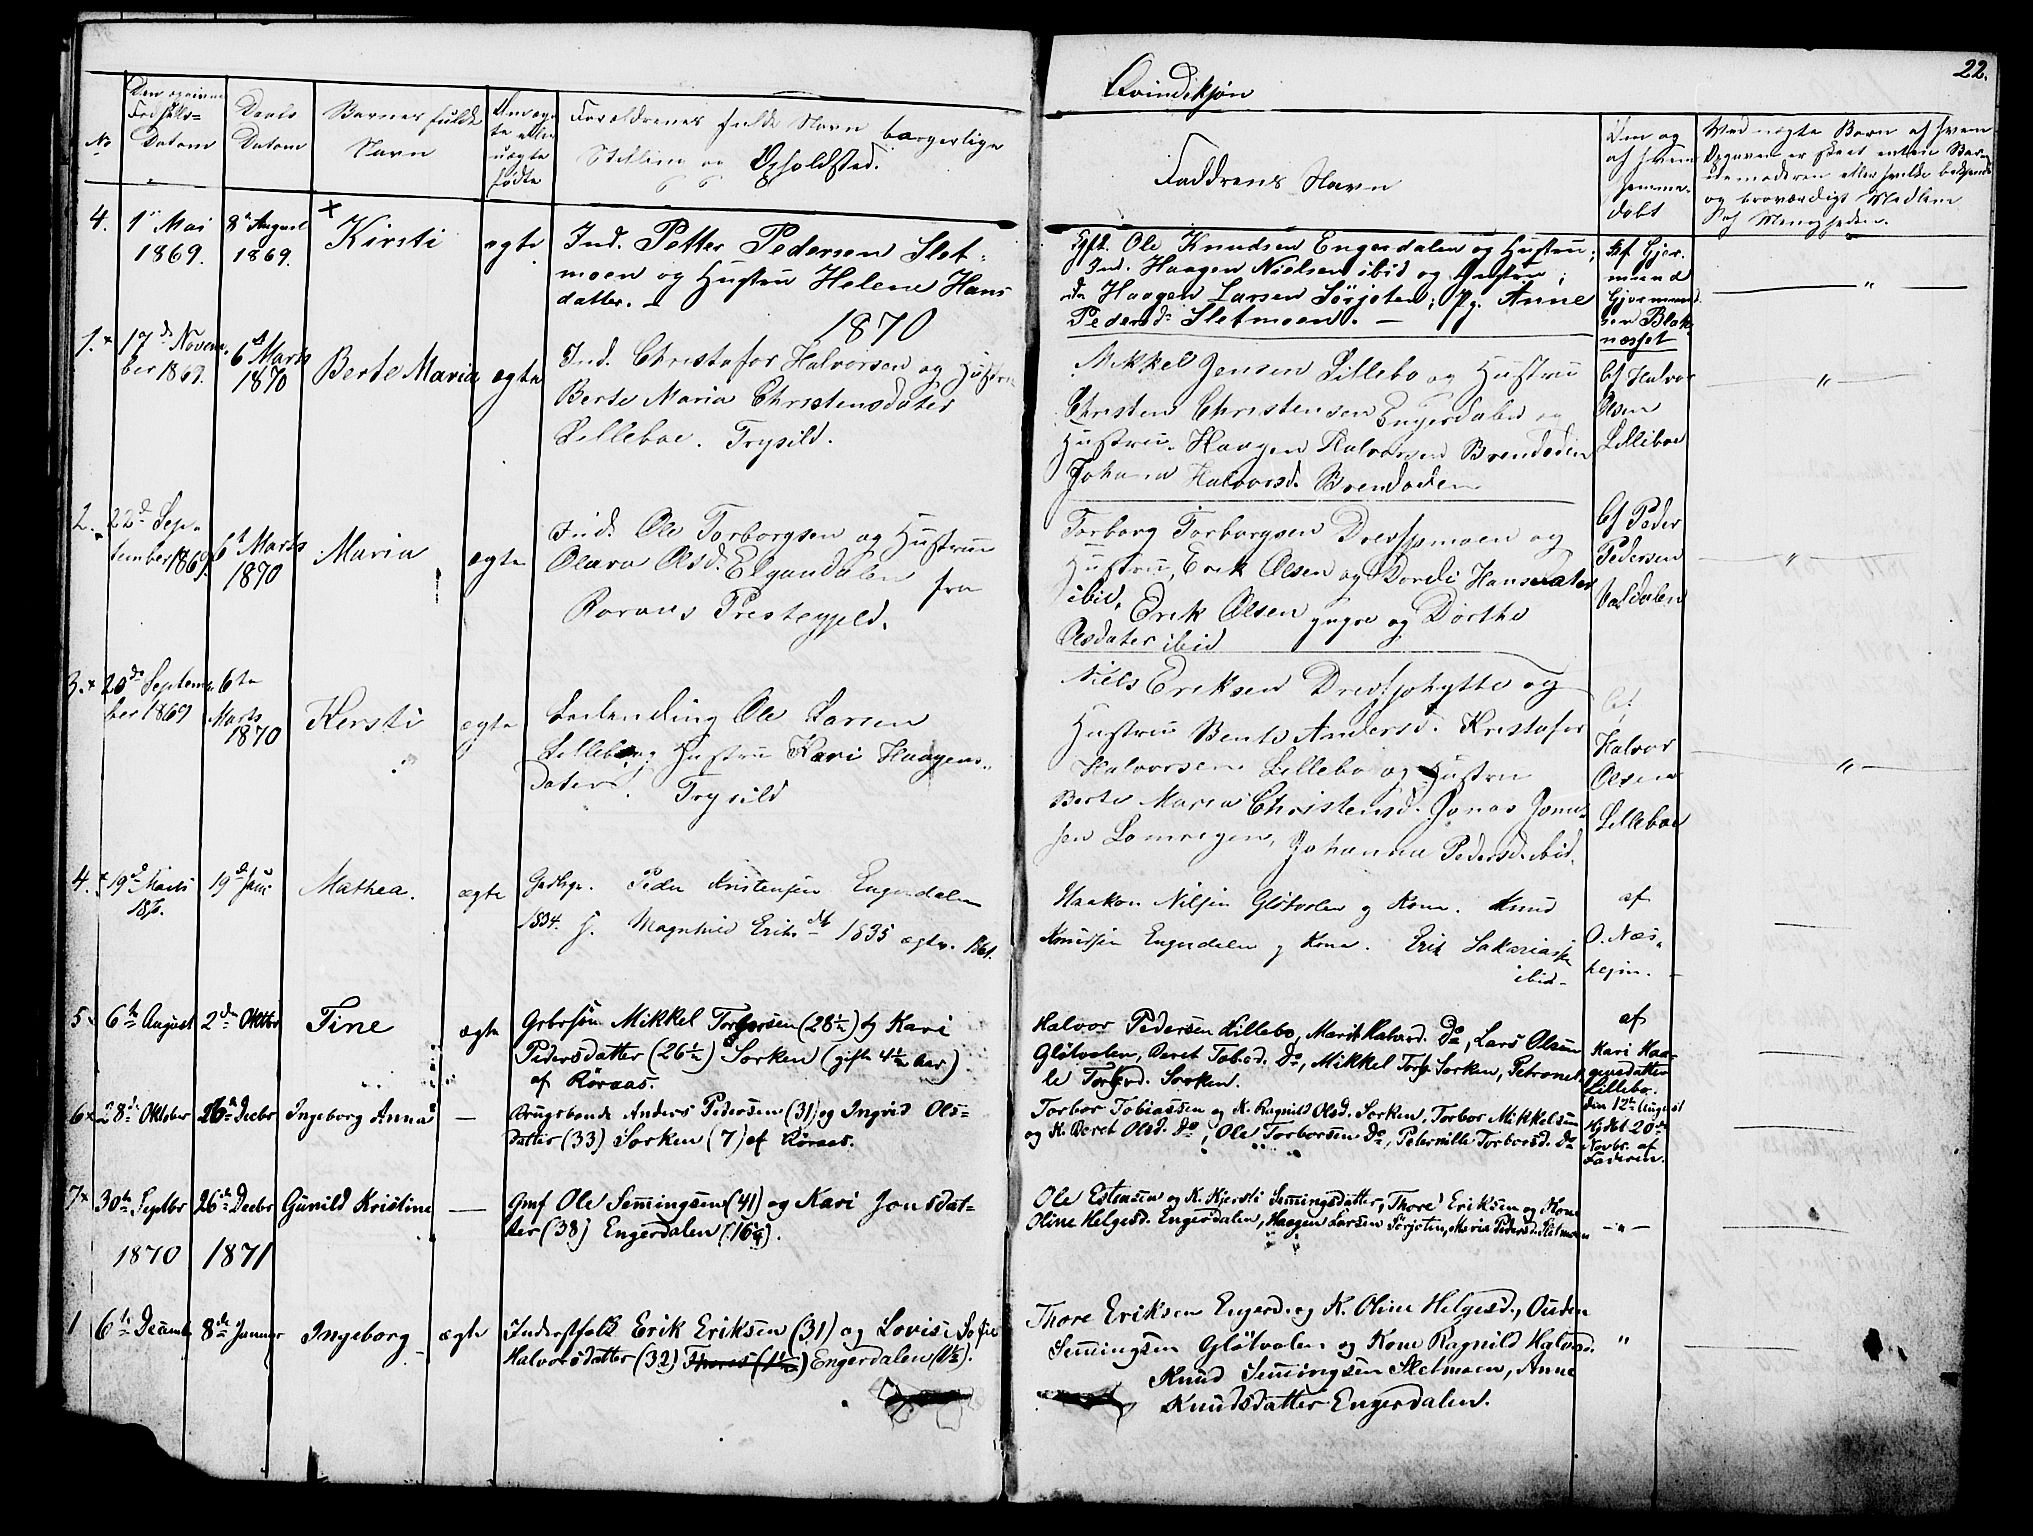 22.
Qvindekjøn
No
Den opgivne
Fødsels=
Datum
Daabs
Datum
Barnets fulde
Navn
Om æg-
te eller
uægte
født
Forældrenes fulde Navn borgerlige
Stilling og Opholdssted.
Faddrenes Navn
Om og
af hvem
hjemme-
døbt
Ved uægte Børn af hvem
Opgaven er skeet enten Bar
og troværdigt Medlem
af Menigheden.
4.
1ste Mai
1869.
8de August
1869.
Kirsti
ægte
Ind. Petter Pedersen Slet-
moen og Hustru Helene Hans
datter. —
Ole Knudsen Engerdalen og Hustru;
Ind. Haagen Nielsen ibid og Hustru;
Haagen Larsen Sørjoten; Pg. Anne
Pedersd. Sletmoen. —
Af Gjer-
mund
Gjermund-
sen Blok-
næsset
1870
1.
17de Novem-
ber 1869.
6te Marts
1870
Berte Maria
ægte
Ind. Christofor Halvorsen og Hustru
Berte Maria Christensdater
Lilleboe. Trysild.
Mikkel Jensen Lillebo og Hustru
Christen Christensen Engerdalen og
Hustru. Haagen Halvorsen Brendøden
Johana Halvorsd. Brendøden
Af Halvor
Olsen
Lilleboe
2.
22de Sep-
tember 1869.
6te Marts
1870
Maria
ægte
Ind. Ole Torborgsen og Hustru
Olava Olsd. Elgaadalen fra
Roraas Prestegjeld.
Torborg Torborgsen Drevsjømoen og
Hustru, Erik Olsen og Dordi Hansdater
ibid, Erik Olsen yngre og Dorthe
Olsdater ibid
Af Peder
Pedersen
Valdalen
3.
20de Septem-
ber 1869
6te
Marts
1870
Kersti
ægte
Leilending Ole Larsen
Lillebo og Hustru Kari Haagens-
Dater. Trysild
Niels Eriksen Drevsjøhytte og
Hustru Bente Andersd. Kristofer
Halvorsen Lillebo og Hustru
Berte Maria Christensd. Jonas Jona-
sen Lomvigen, Johanna Pedersd. ibid.
Af
Halvor
Olsen
Lilleboe
4.
19de Marts
1870.
19de Juni
Mathea.
ægte
Peder Kristensen Engerdalen
1834. og Magnhild Eriksdt 1835 ægtv. 1861.
Haakon Nilsen Gløtvolen og Kone. Knud
Knudsen Engerdalen og Kone. Erik Sakariasen
ibid-
af
O. Næs-
hejm.
5
6te August
2den Oktbr
Tine
ægte
Grbrsøn Mikkel Torbersen (28½) og Kari
Pedersdatter (26½) Sorken (gifte 4½ Aar).
af Röraas.
Halvor Pedersen Lillebo, Marit Halvord. Do, Lars Olsen
Gløtvolen, Beret Tobd. Do, Mikkel Torb. Sorken, Petronel-
le Torbd. Sorken.
af
Kari Haa-
gensdatter
Lillebo.
6
28de Oktober
26de Decbr
Ingeborg Anna
—
Brugsbonde Anders Pedersen (31) og Ingrid Ols-
datter (33) Sorken (7) af Röraas.
Torber Tobiassen og K. Ragnild Olsd. Sorken, Torber Mikkelsen
og K. Beret Olsd. Do, Ole Torborsen Do, Peternille Torborsd. Do
den 12te August
Hjdbt 20de
Novbr. af
Faderen.
7
30te Septbr
26de Decbr
Gunild Kristine
—
Gmf Ole Semingsen (41) og Kari Jonsdat-
ter (38) Engerdalen (16½).
Ole Estensen og K. Kjersti Semingsdatter, Thore Eriksen og Kone
Oline Helgesd. Engerdalen, Haagen Larsen Sørjoten, Maria Pedersd. Sletmoen
— " —
1870
1871
1
6te Decemb.
8de Januar
Ingeborg
ægte
Inderstfolk Erik Eriksen (31) og Lovise Sofie
Halvorsdatter (32) Engerdalen (1½).
Thore Eriksen Engerd. og K. Oline Helgesd., Ouden
Semingsen Gløtvolen og Kone Ragnild Halvorsd.
Knud Semingsen Sletmoen, Anne
Knudsdatter Engerdalen.
"